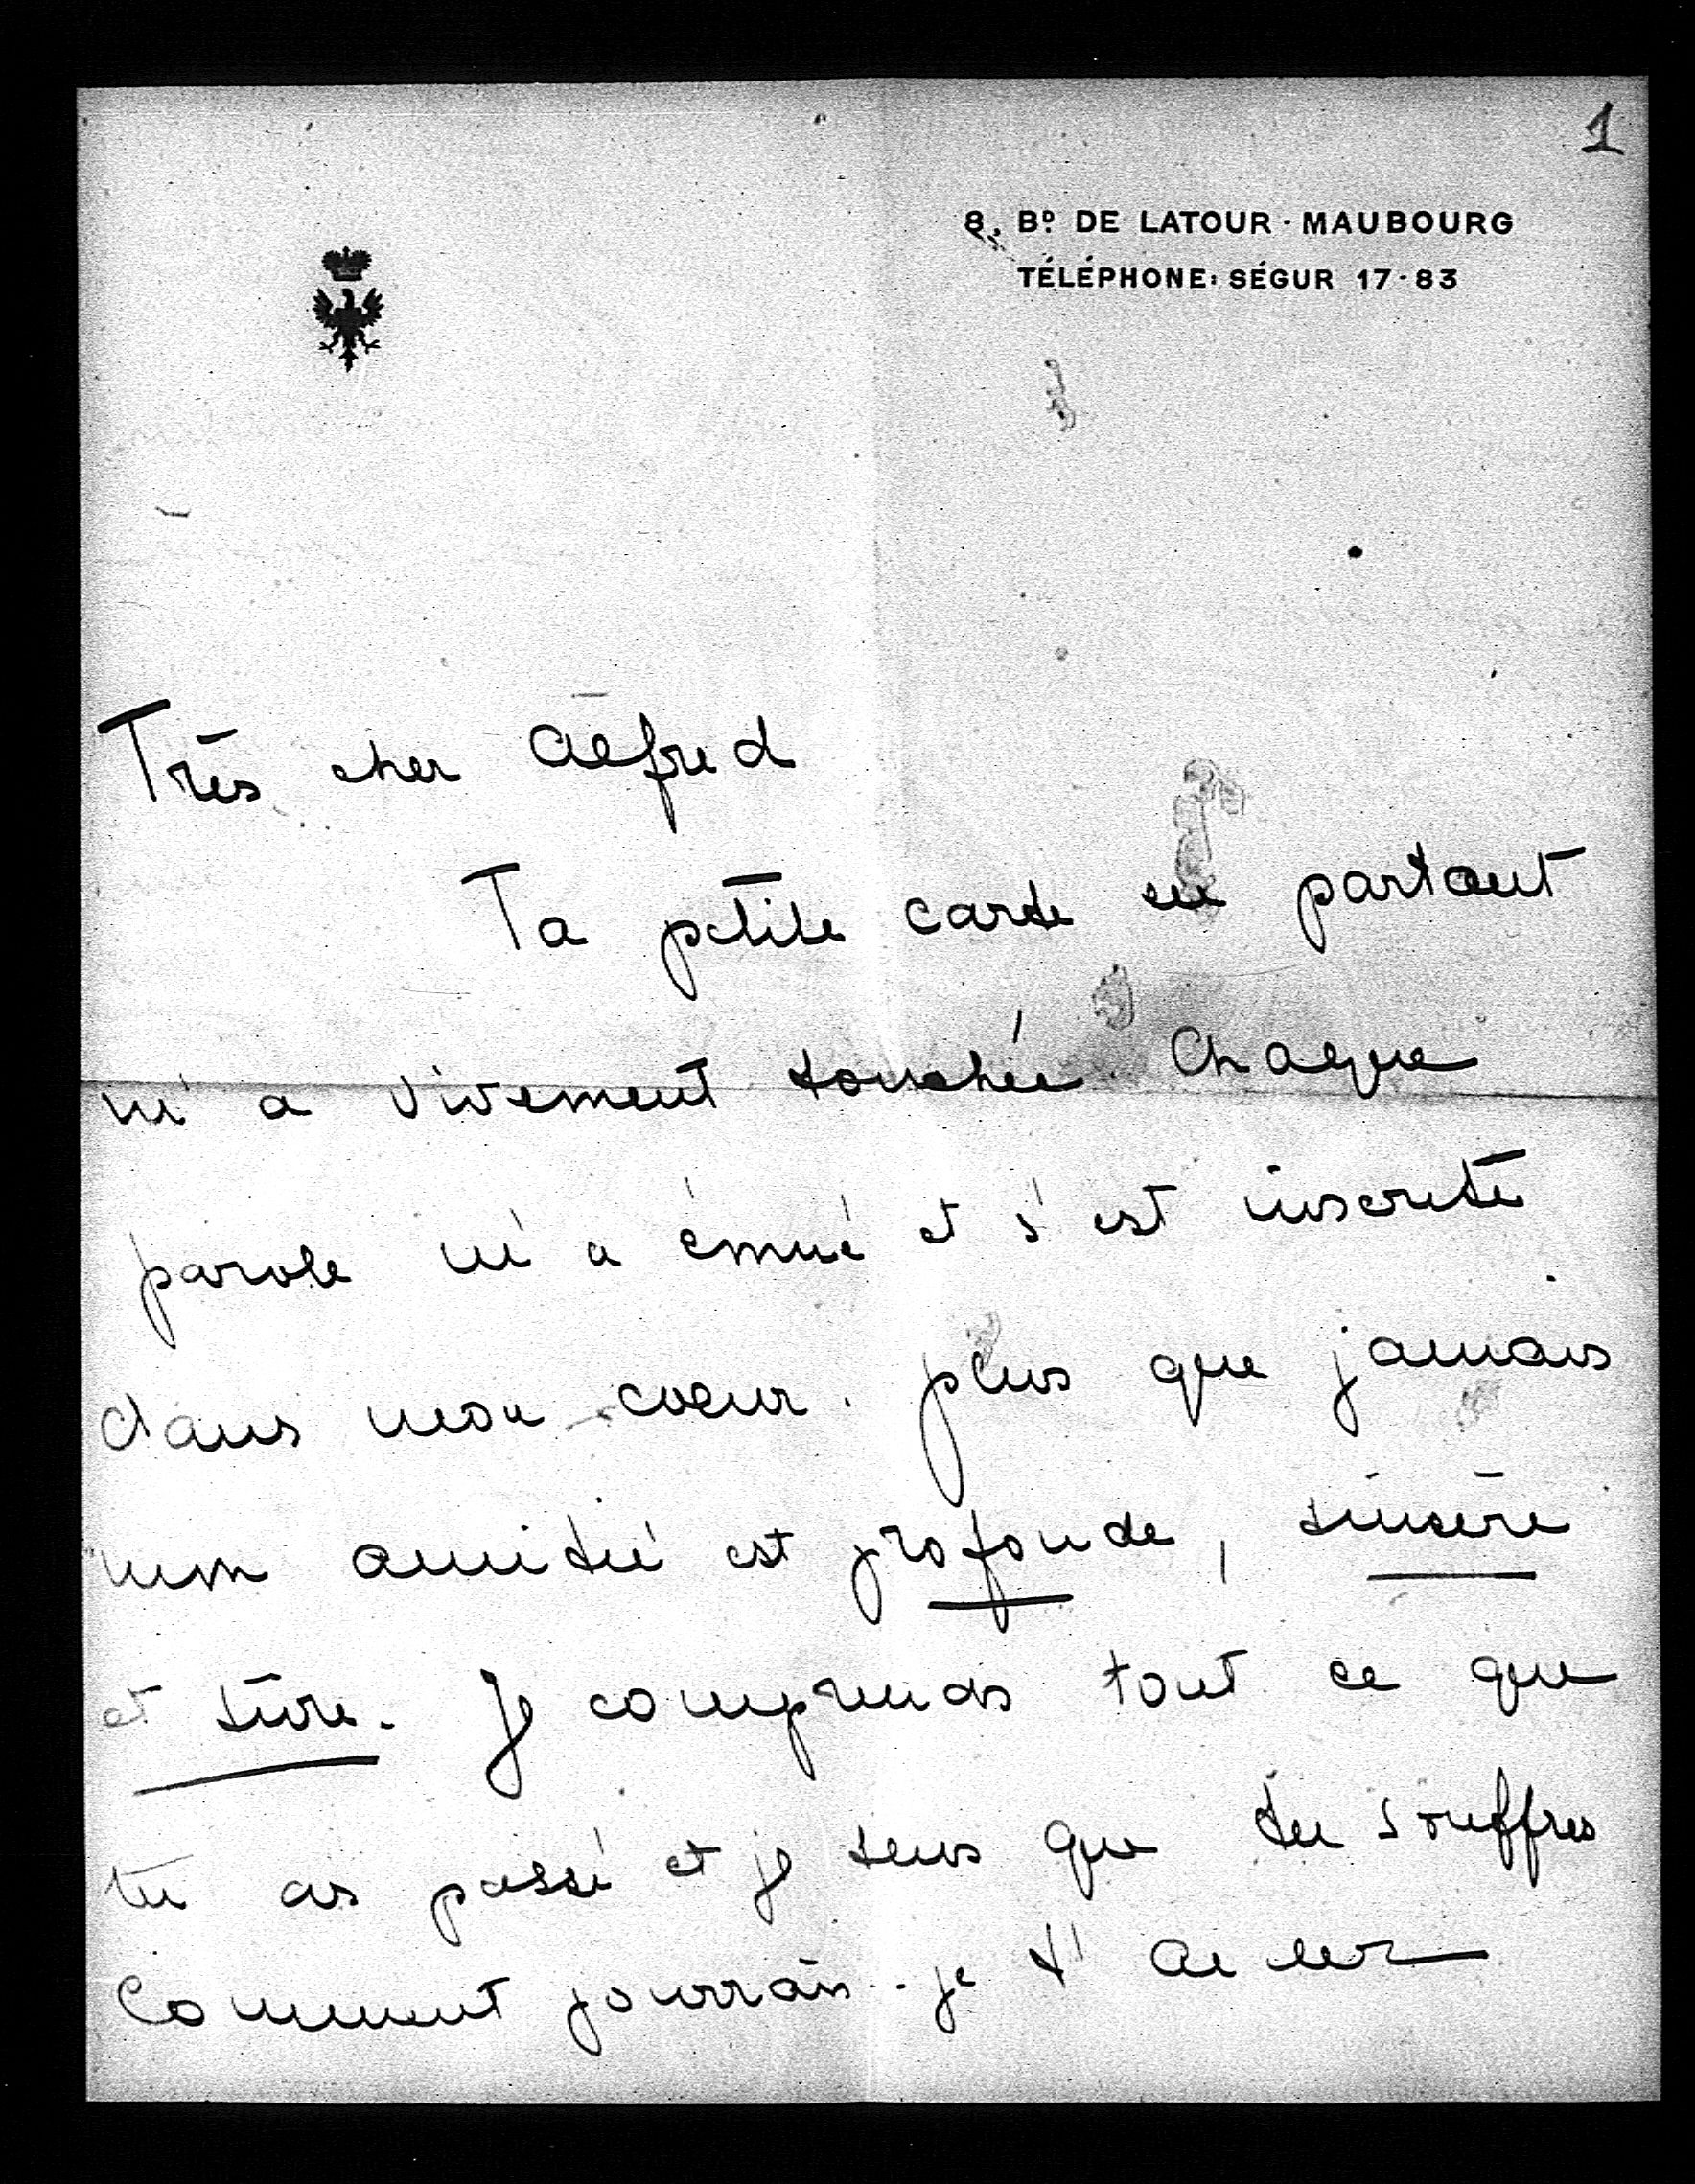 1
8, Bᴰ DE LATOUR-MAUBOURG
TÉLÉPHONE: SÉGUR 17-83
Très cher Alfred
Ta petite carte en partant
m'a vivement touchée. Chaque
parole m'a émue et s'est inscrite
dans mon coeur. plus que jamais
mon amitié est profonde, sincère
et sûre. Je comprends tout ce que
tu as passé et je sens que tu souffres
Comment pourrais-je t'